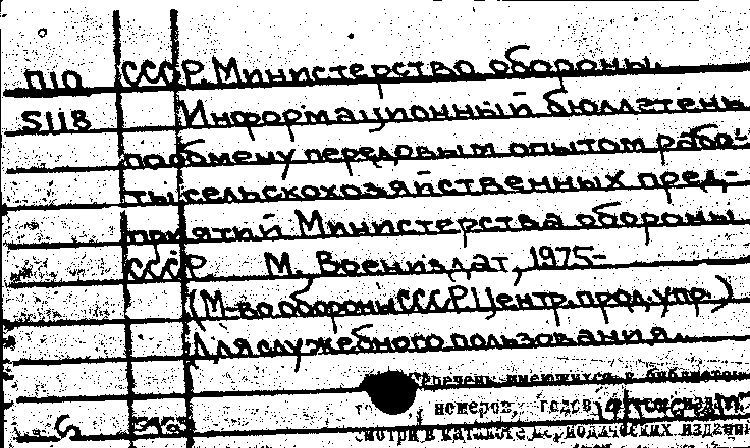 П10 СССР. Министерство обороны.
5118 Информационный бюллетень
по обмену передовым опытом рабо-
ты сельскохозяйственных пред-
приятий Министерства обороны
СССР М., Воениздат, 1975-
(М-во обороны СССР. Центр. прод. упр.)
Для служебного пользования.
Перечень имеющихся в библиотеке
номеров, годов
смотри в каталоге периодических изданий